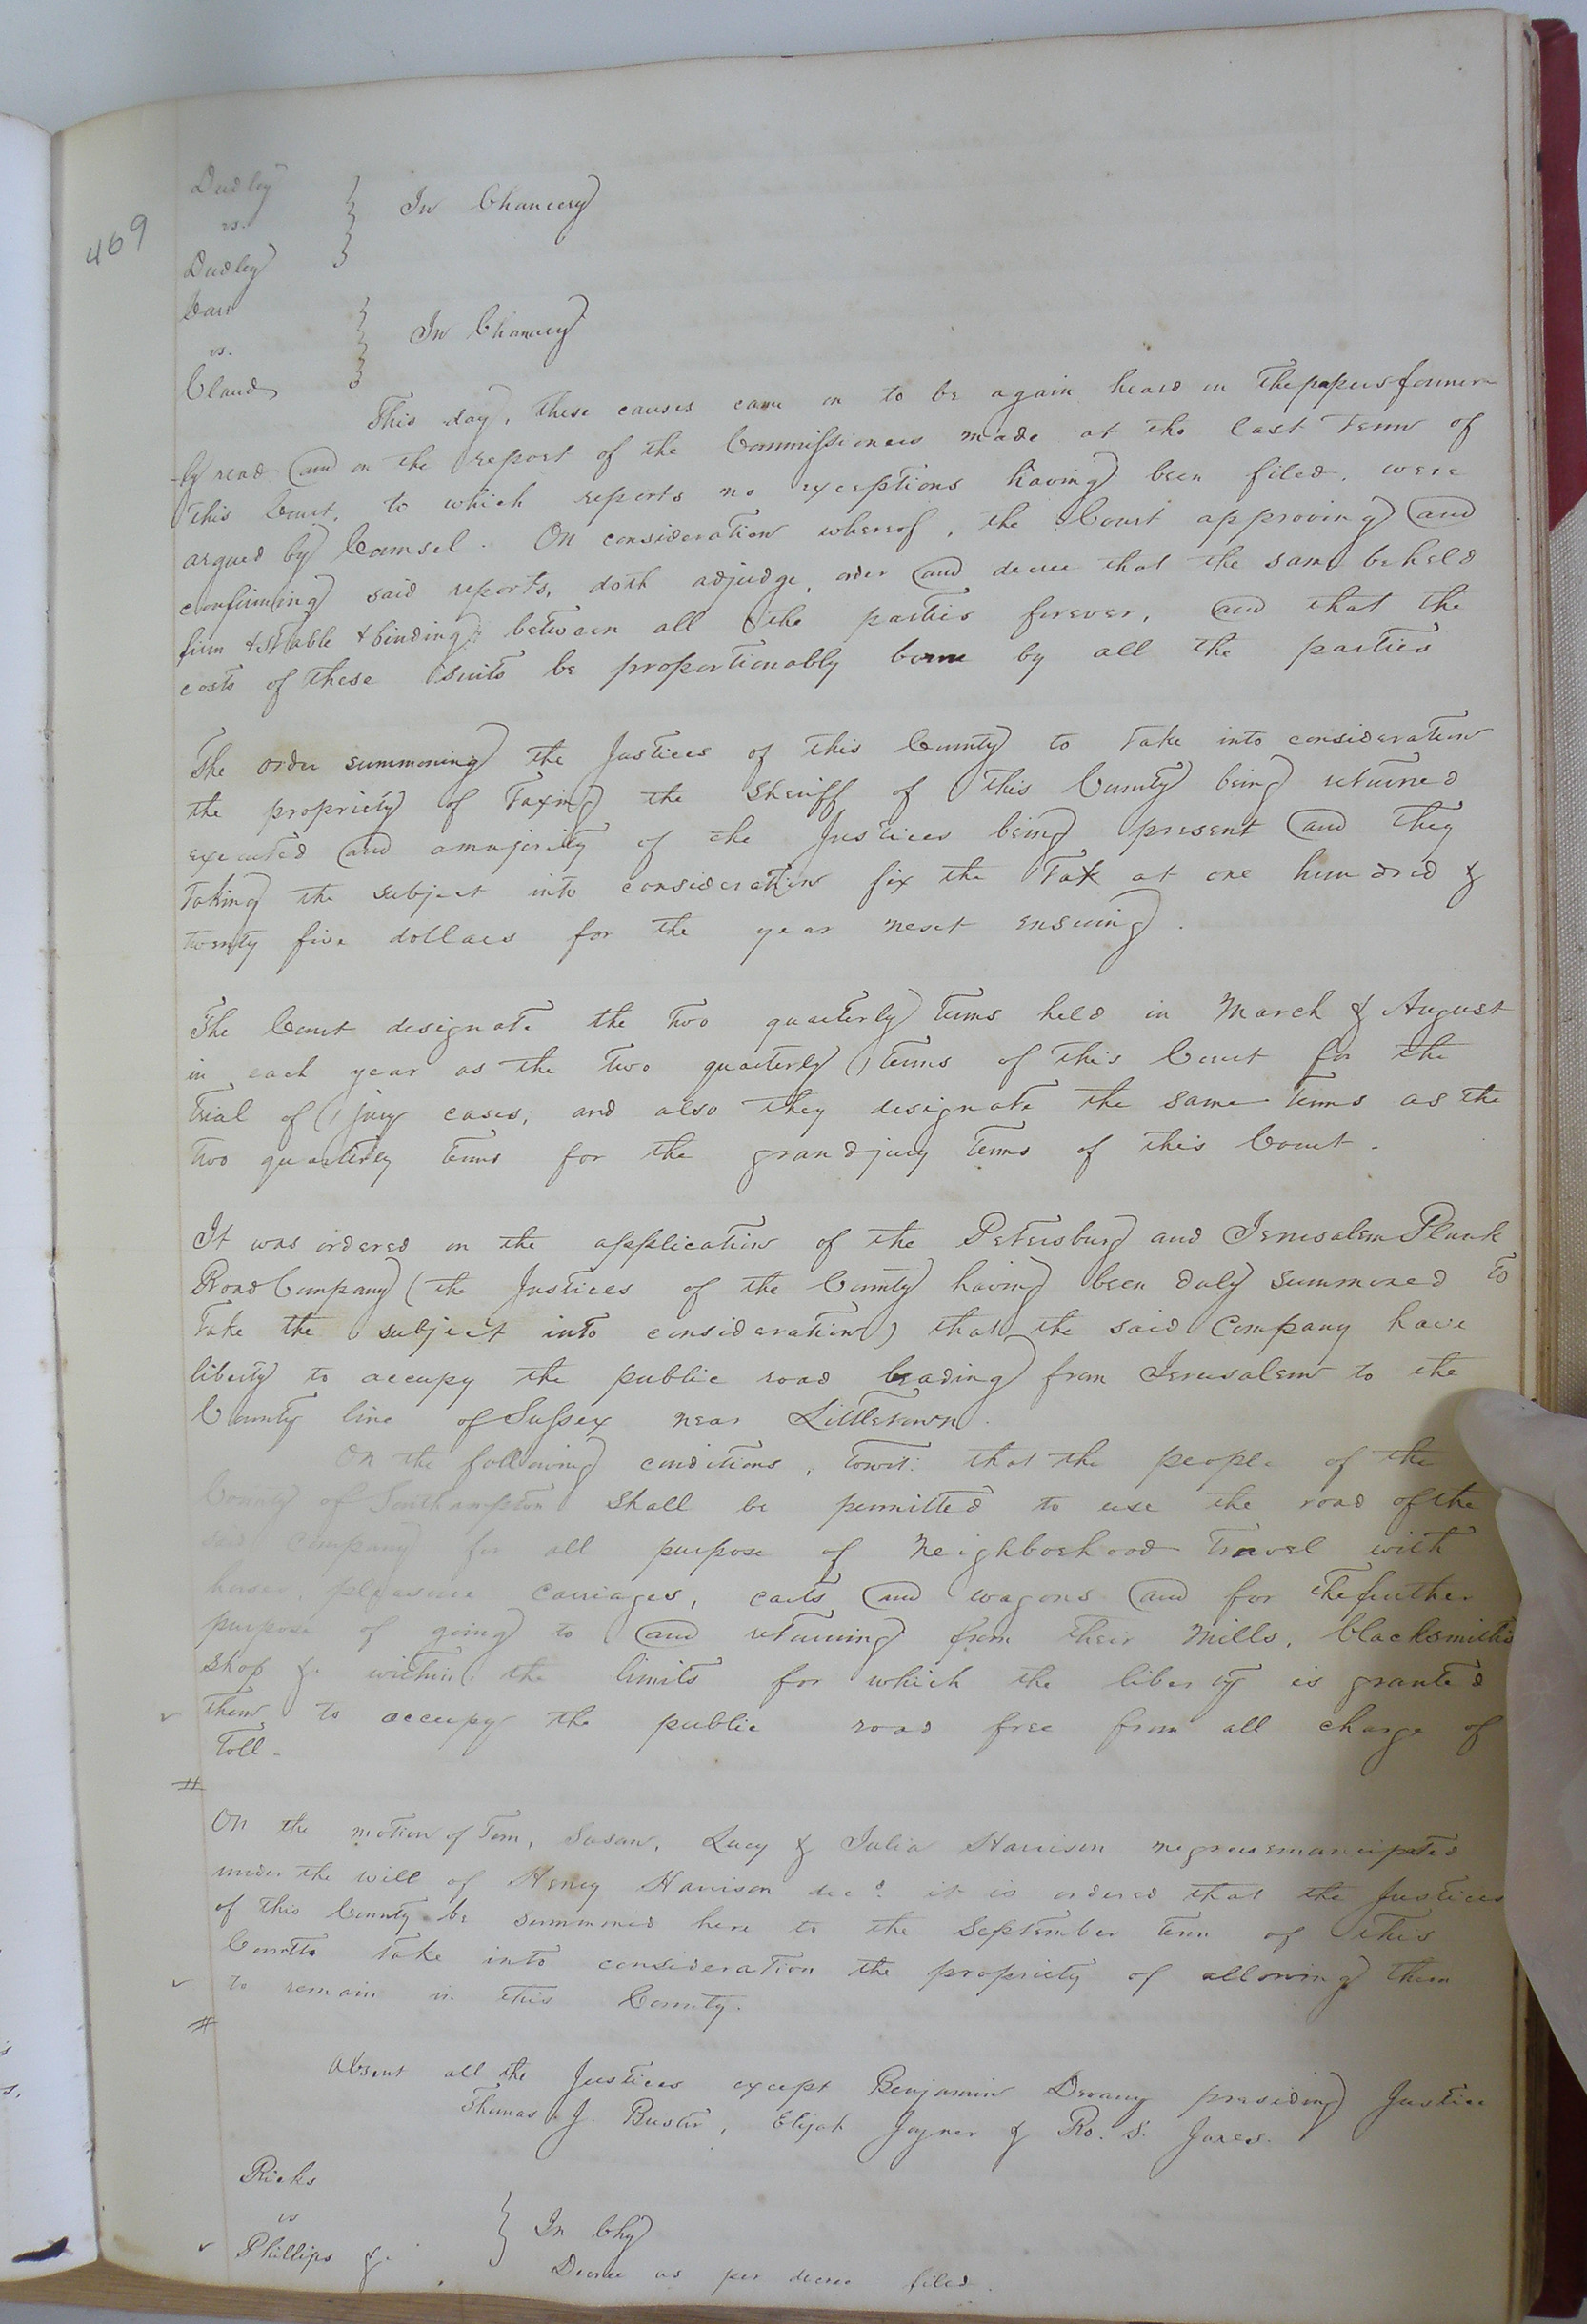 469
Dudley
vs. } In Chancery
Dudley
Carr
vs. } In Chancery
Claud
This day, these causes came on to be again heard on the papers former-
ly read and on the report of the Commissioners made at the last Term of
this Court, to which reports no exceptions having been filed, were
argued by Counsel. On consideration whereof, the Court approving and
confirming said reports, doth adjudge, order and decree that the same be held
firm & stable & binding between all the parties forever, and that the
costs of these suits be proportionably borne by all the parties
The order summoning the Justices of this County to take into consideration
the propriety of Taxing the Sheriff of this County being returned
executed and a majority of the Justices being present and they
taking the subject into consideration fix the Tax at one hundred &
twenty five dollars for the year next ensuing.
The Court designate the two quarterly Terms held in March & August
in each year as the two quarterly Terms of this Court for the
trial of jury cases; and also they designate the same terms as the
two quarterly terms for the grand jury terms of this Court.
It was ordered on the application of the Petersburg and Jerusalem Plank
Road Company (the Justices of the County having been duly summoned to
take the subject into consideration) that the said Company have
liberty to occupy the public road leading from Jerusalem to the
County line of Sussex near Littletown.
On the following conditions, towit: that the people of the
County of Southampton shall be permitted to use the road of the
said company for all purpose of neighborhood travel with
horses, pleasure carriages, carts and wagons and for the further
purpose of going to and returning from their Mills, blacksmiths
shop &c within the limits for which the liberty is granted
them to occupy the public road free from all charge of
Toll.
On the motion of Tom, Susan, Lucy & Julia Harrison negroes emancipated
under the will of Henry Harrison decd. it is ordered that the Justices
of this County be summoned here to the September term of this
Court to take into consideration the propriety of allowing them
to remain in this County.
Absent all the Justices except Benjamin Devany presiding Justice
Thomas J. Bristor, Elijah Joyner & Ro. S. Jones.
Ricks
vs } In Chy
Phillips &c
Decree as per decree filed.